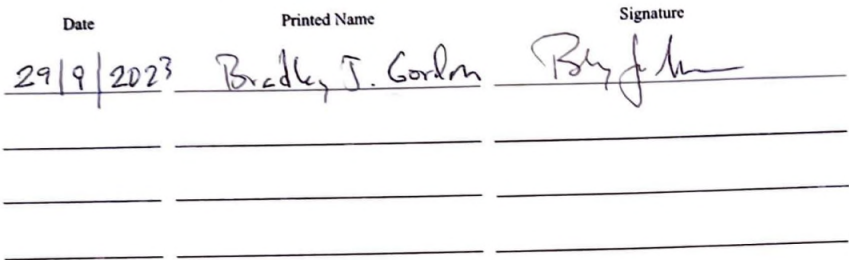 Date Printed Name Signature
29/9/2023 Bradley J. Gordon